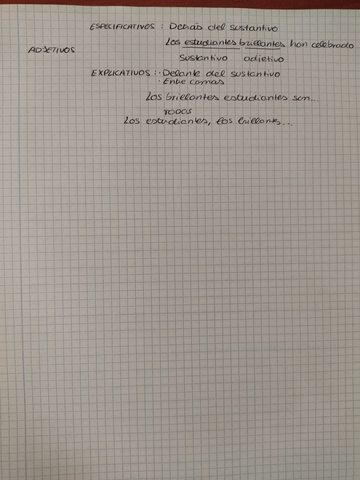 ESPECIFICATIVOS: Detrás del sustantivo
Los estudiantes brillantes han celebrado
ADJETIVOS
sustantivo adjetivo
EXPLICATIVOS: · Delante del sustantivo
· Entre comas
Los brillantes estudiantes son...
TODOS
Los estudiantes, los brillants...